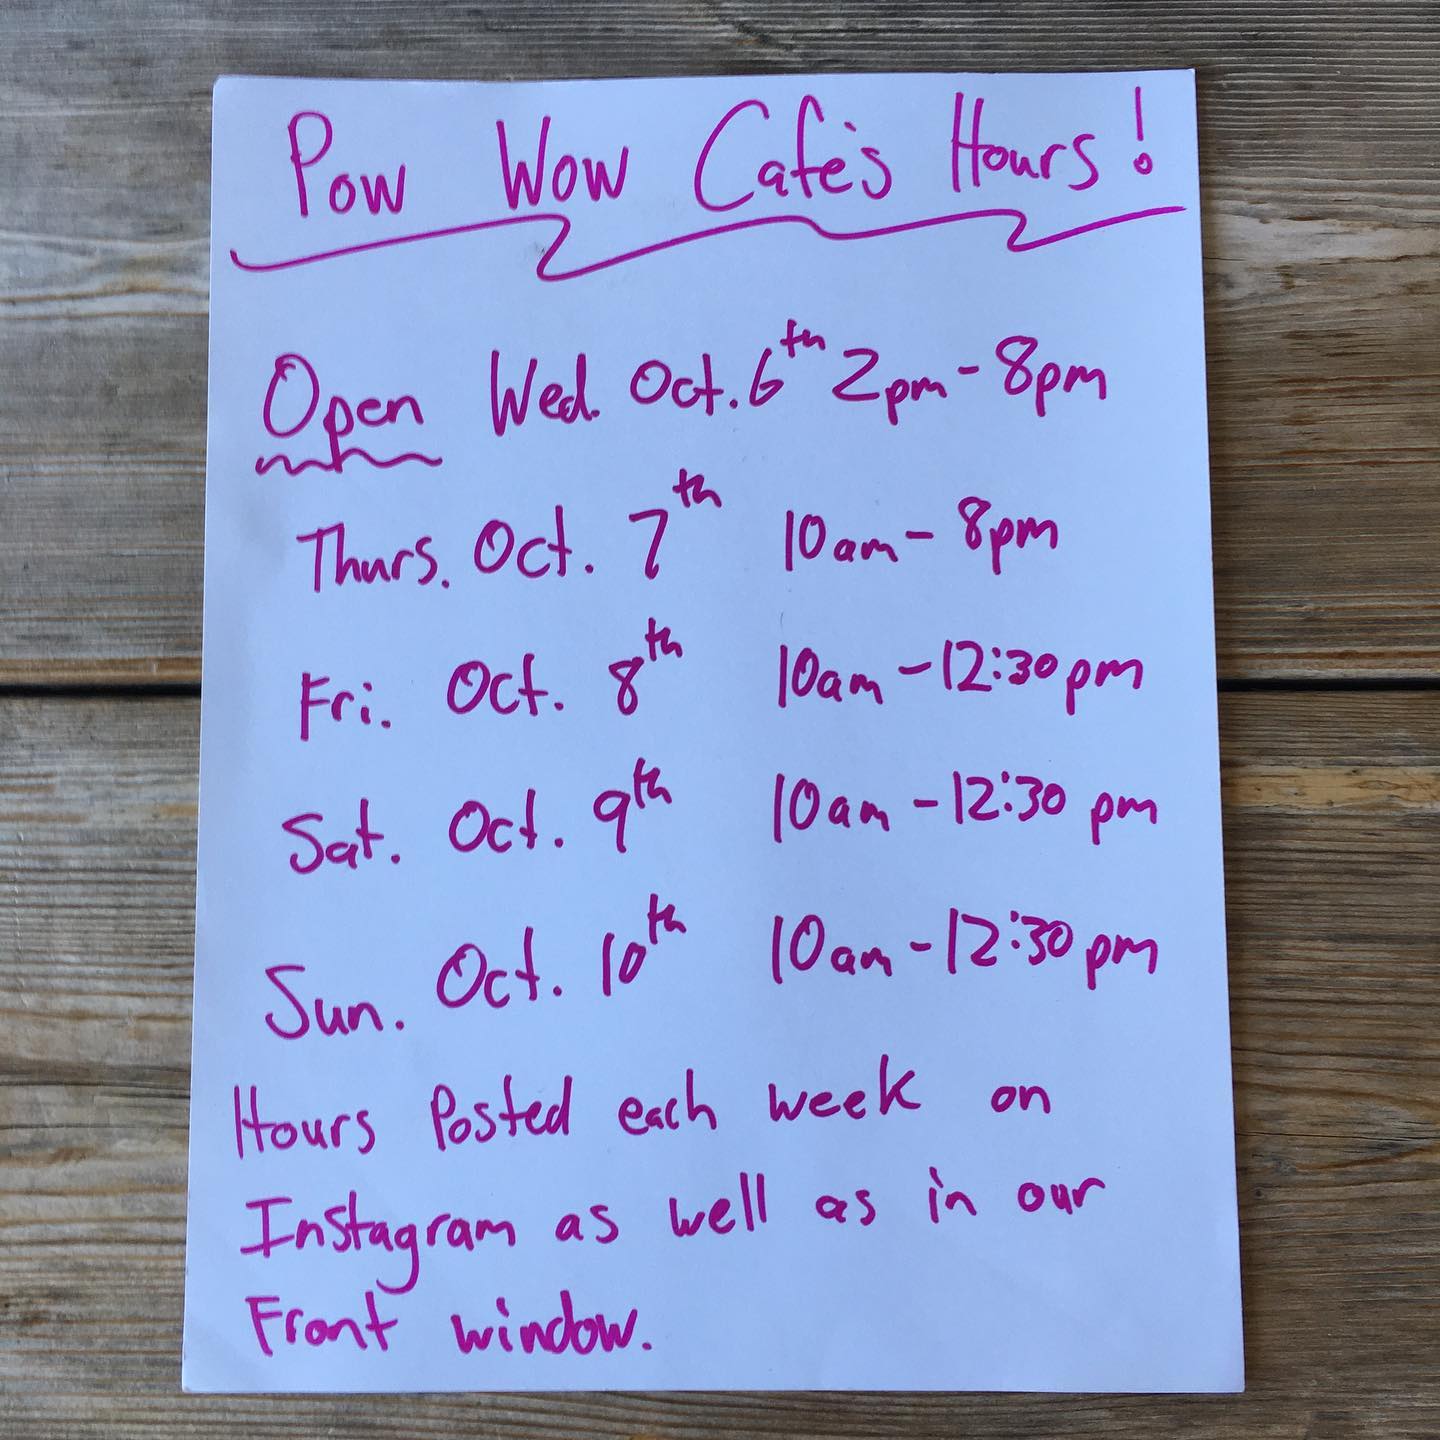 Pow Wow Cafe's Hours!
Open Wed. Oct. 6th 2pm - 8pm
Thurs. Oct. 7th 10am - 8pm
Fri. Oct. 8th 10am - 12:30pm
Sat. Oct. 9th 10am - 12:30 pm
Sun. Oct. 10th 10am - 12:30 pm
Hours Posted each week on
Instagram as well as in our
Front window.